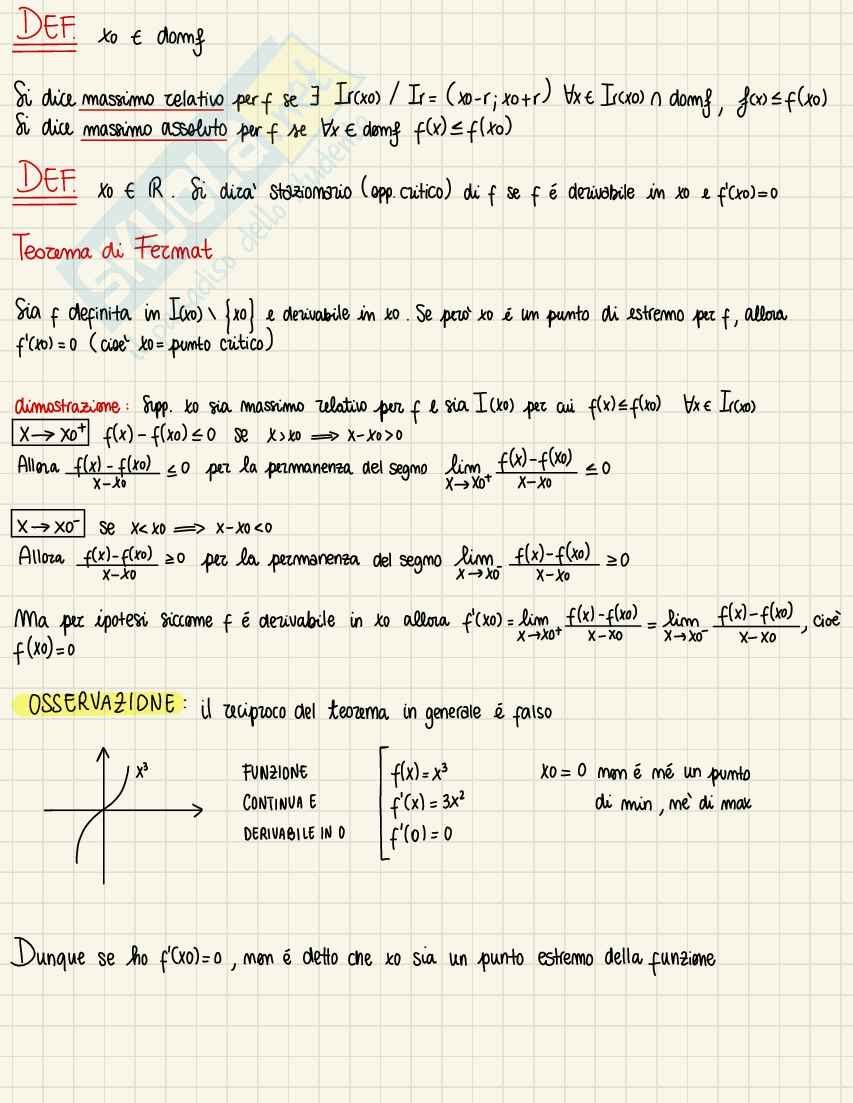 DEF. x0 ∈ domf
Si dice massimo relativo per f se ∃ Ir(x0) / Ir = (x0-r; x0+r) ∀x ∈ Ir(x0) ∩ domf, f(x) ≤ f(x0)
Si dice massimo assoluto per f se ∀x ∈ domf f(x) ≤ f(x0)
DEF. x0 ∈ R. Si dira' stazionario (opp. critico) di f se f é derivabile in x0 e f'(x0)=0
Teorema di Fermat
Sia f definita in I(x0) \ {x0} e derivabile in x0. Se pero' x0 é un punto di estremo per f, allora
f'(x0)=0 (cioe' x0= punto critico)
dimostrazione: Supp. x0 sia massimo relativo per f e sia I(x0) per cui f(x) ≤ f(x0) ∀x ∈ Ir(x0)
x → x0⁺ f(x) - f(x0) ≤ 0 se x > x0 ⟹ x-x0 > 0
Allora f(x) - f(x0) / x-x0 ≤ 0 per la permanenza del segno lim x→x0⁺ f(x)-f(x0) / x-x0 ≤ 0
x → x0⁻ se x < x0 ⟹ x-x0 < 0
Allora f(x)-f(x0) / x-x0 ≥ 0 per la permanenza del segno lim x→x0⁻ f(x)-f(x0) / x-x0 ≥ 0
Ma per ipotesi siccome f é derivabile in x0 allora f'(x0) = lim x→x0⁺ f(x)-f(x0) / x-x0 = lim x→x0⁻ f(x)-f(x0) / x-x0, cioè
f(x0)=0
OSSERVAZIONE: il reciproco del teorema in generale é falso
x³
FUNZIONE
CONTINUA E
DERIVABILE IN 0
f(x) = x³
f'(x) = 3x²
f'(0) = 0
x0 = 0 non é né un punto
di min, ne' di max
Dunque se ho f'(x0)=0, non é detto che x0 sia un punto estremo della funzione
SKUOLA.net
il paradiso dello studente